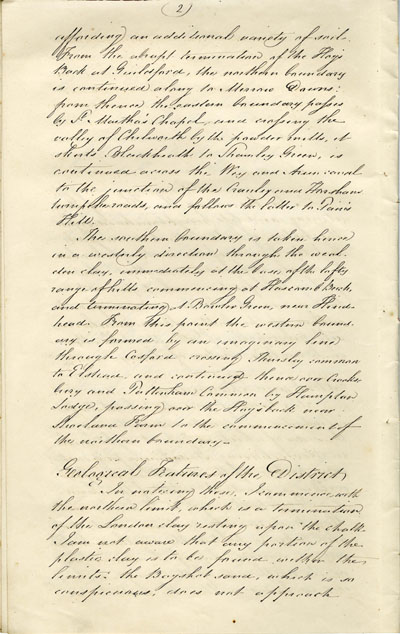 (2)
affording an additional variety of soil.
From the abrupt termination of the Hog's
Back at Guildford, the northern boundary
is continued along to Merrow Downs:
from thence the eastern boundary passes
by St. Martha's Chapel, and crossing the
valley of Chilworth by the powder mills, it
skirts Blackheath to Shamley Green, is
continued across the Wey and Arun canal
to the junction of the Cranley and Horsham
turnpike roads, and follows the latter to
Hill.
The southern boundary is taken hence
in a westerly direction through the weal-
den clay, immediately at the base of the lofty
range of hills commencing at Hascomb
and terminating at Bowler Green, near Hind-
head. From this point the western bound-
ary is formed by an imaginary line
through Cosford crossing Thursley common
to Elstead, and continuing thence over Crooks-
bury and Puttenham Common by Hampton
Lodge, passing over the Hog's back near
Farm to the commencement of
the northern boundary.
Geological Features of the District
In noticing these, I commence with
the northern limit, which is a termination
of the London clay resting upon the chalk.
I am not aware that any portion of the
plastic clay is to be found within the
limits: the Bagshot sand, which is so
conspicuous, does not approach